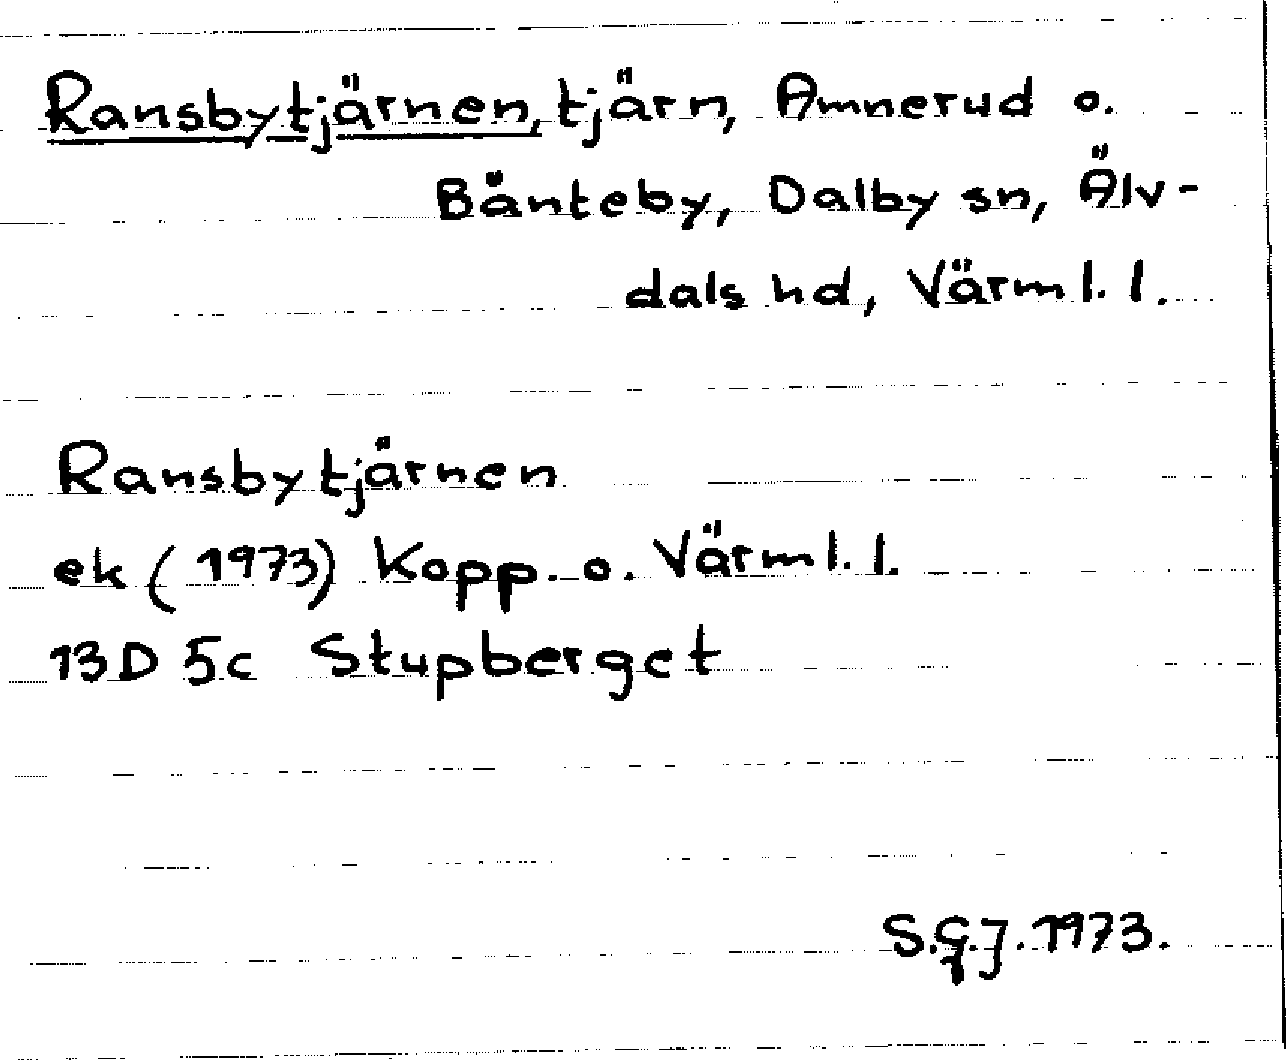 Ransbytjärnen, tjärn, Amnerud o.
Bänteby, Dalby sn, Älv-
dals hd, Värml. l.
Ransbytjärnen
ek (1973) Kopp. o. Värml. l.
13D 5c Stupberget
S.G.J. 1973.